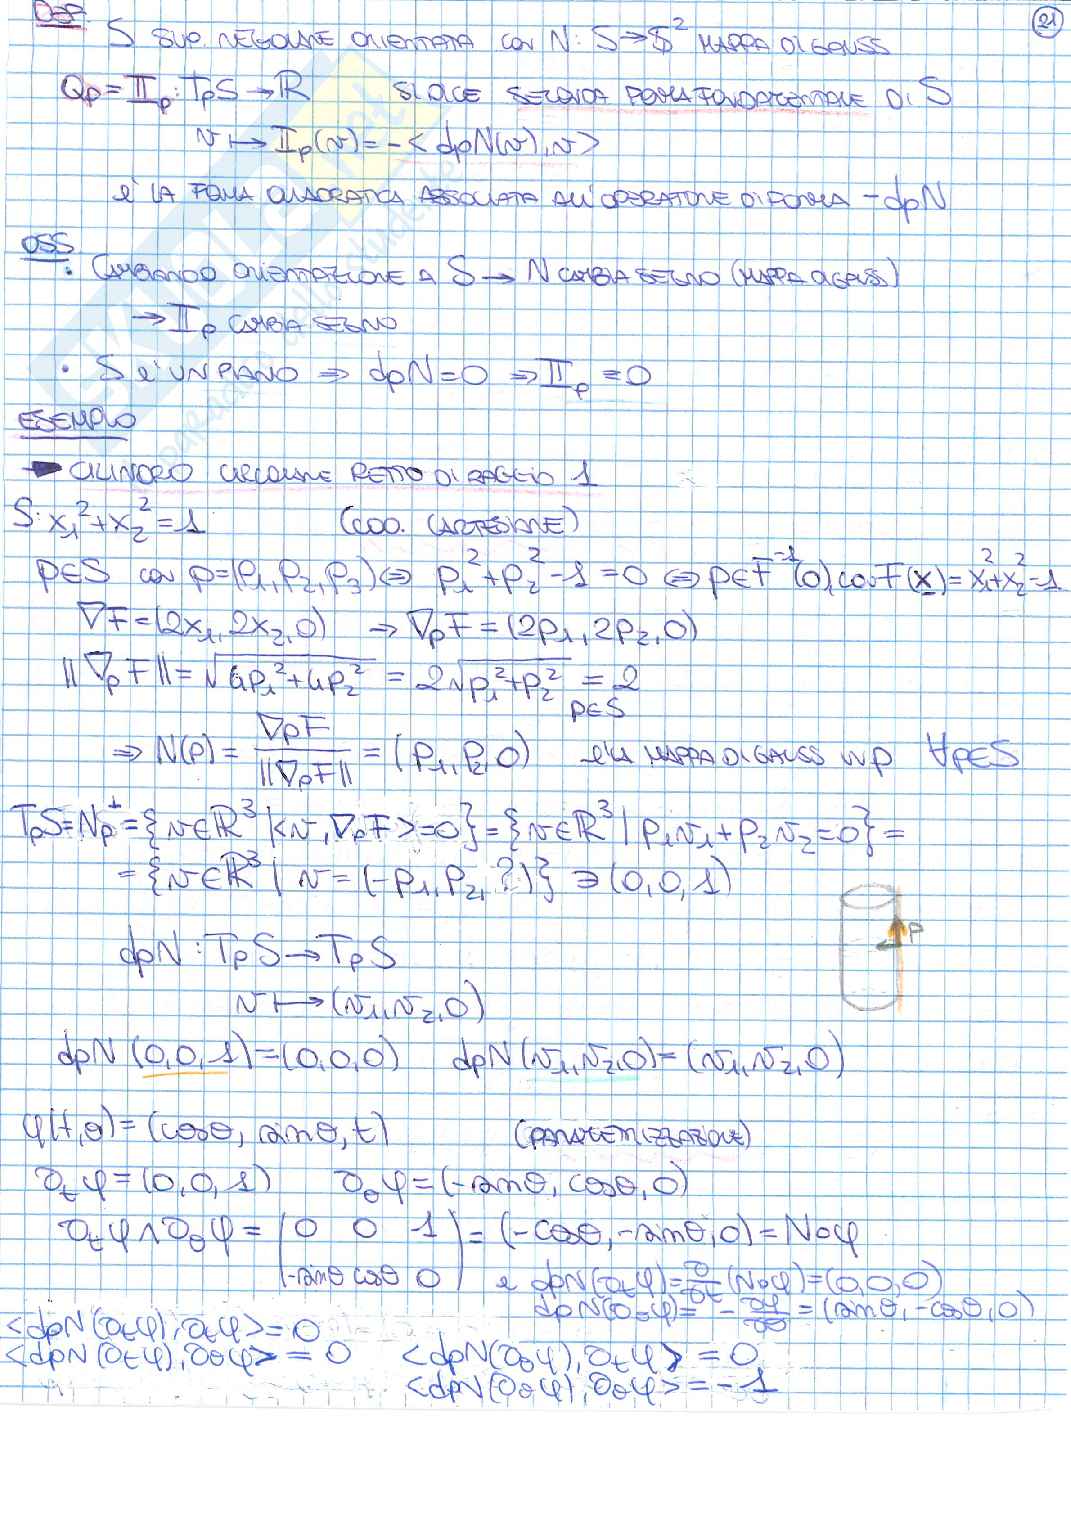 DEF
21
S SUP. REGOLARE ORIENTATA con N: S→S² MAPPA DI GAUSS
Qp = IIp : TpS → ℝ SI DICE SECONDA FORMA FONDAMENTALE DI S
v ↦ IIp(v) = -<dpN(v), v>
è LA FORMA QUADRATICA ASSOCIATA ALL'OPERATORE DI FORMA -dpN
OSS
• CAMBIANDO ORIENTAZIONE A S → N CAMBIA SEGNO (MAPPA DI GAUSS)
→ IIp CAMBIA SEGNO
• S è UN PIANO ⇒ dpN=0 ⇒ IIp = 0
ESEMPIO
→ CILINDRO CIRCOLARE RETTO DI RAGGIO 1
S: x₁²+x₂²=1 (COO. CARTESIANE)
p∈S con p=(p₁,p₂,p₃) ⇔ p₁²+p₂²-1=0 ⇔ p∈F⁻¹(0), con F(x)=x₁²+x₂²-1
∇F=(2x₁, 2x₂, 0) → ∇pF=(2p₁, 2p₂, 0)
||∇pF|| = √4p₁²+4p₂² = 2√p₁²+p₂² = 2
p∈S
⇒ N(p) = ∇pF / ||∇pF|| = (p₁, p₂, 0) è la MAPPA DI GAUSS in p ∀p∈S
TpS=Np⊥={v∈ℝ³ | <v, ∇pF>=0}={v∈ℝ³ | p₁v₁+p₂v₂=0}=
={v∈ℝ³ | v=(-p₁, p₂, ?)} ∋ (0,0,1)
p
dpN : TpS → TpS
v ↦ (v₁, v₂, 0)
dpN(0,0,1)=(0,0,0) dpN(v₁,v₂,0)=(v₁,v₂,0)
φ(t,θ)=(cosθ, sinθ, t) (PARAMETRIZZAZIONE)
∂tφ=(0,0,1) ∂θφ=(-sinθ, cosθ, 0)
∂tφ∧∂θφ = | 0 0 1 | = (-cosθ, -sinθ, 0) = N∘φ
|-sinθ cosθ 0 | e dpN(∂tφ)=∂/∂t(N∘φ)=(0,0,0)
dpN(∂θφ)= -∂φ/∂θ =(sinθ, -cosθ, 0)
<dpN(∂tφ), ∂tφ>=0
<dpN(∂tφ), ∂θφ>=0 <dpN(∂θφ), ∂tφ>=0
<dpN(∂θφ), ∂θφ>=-1